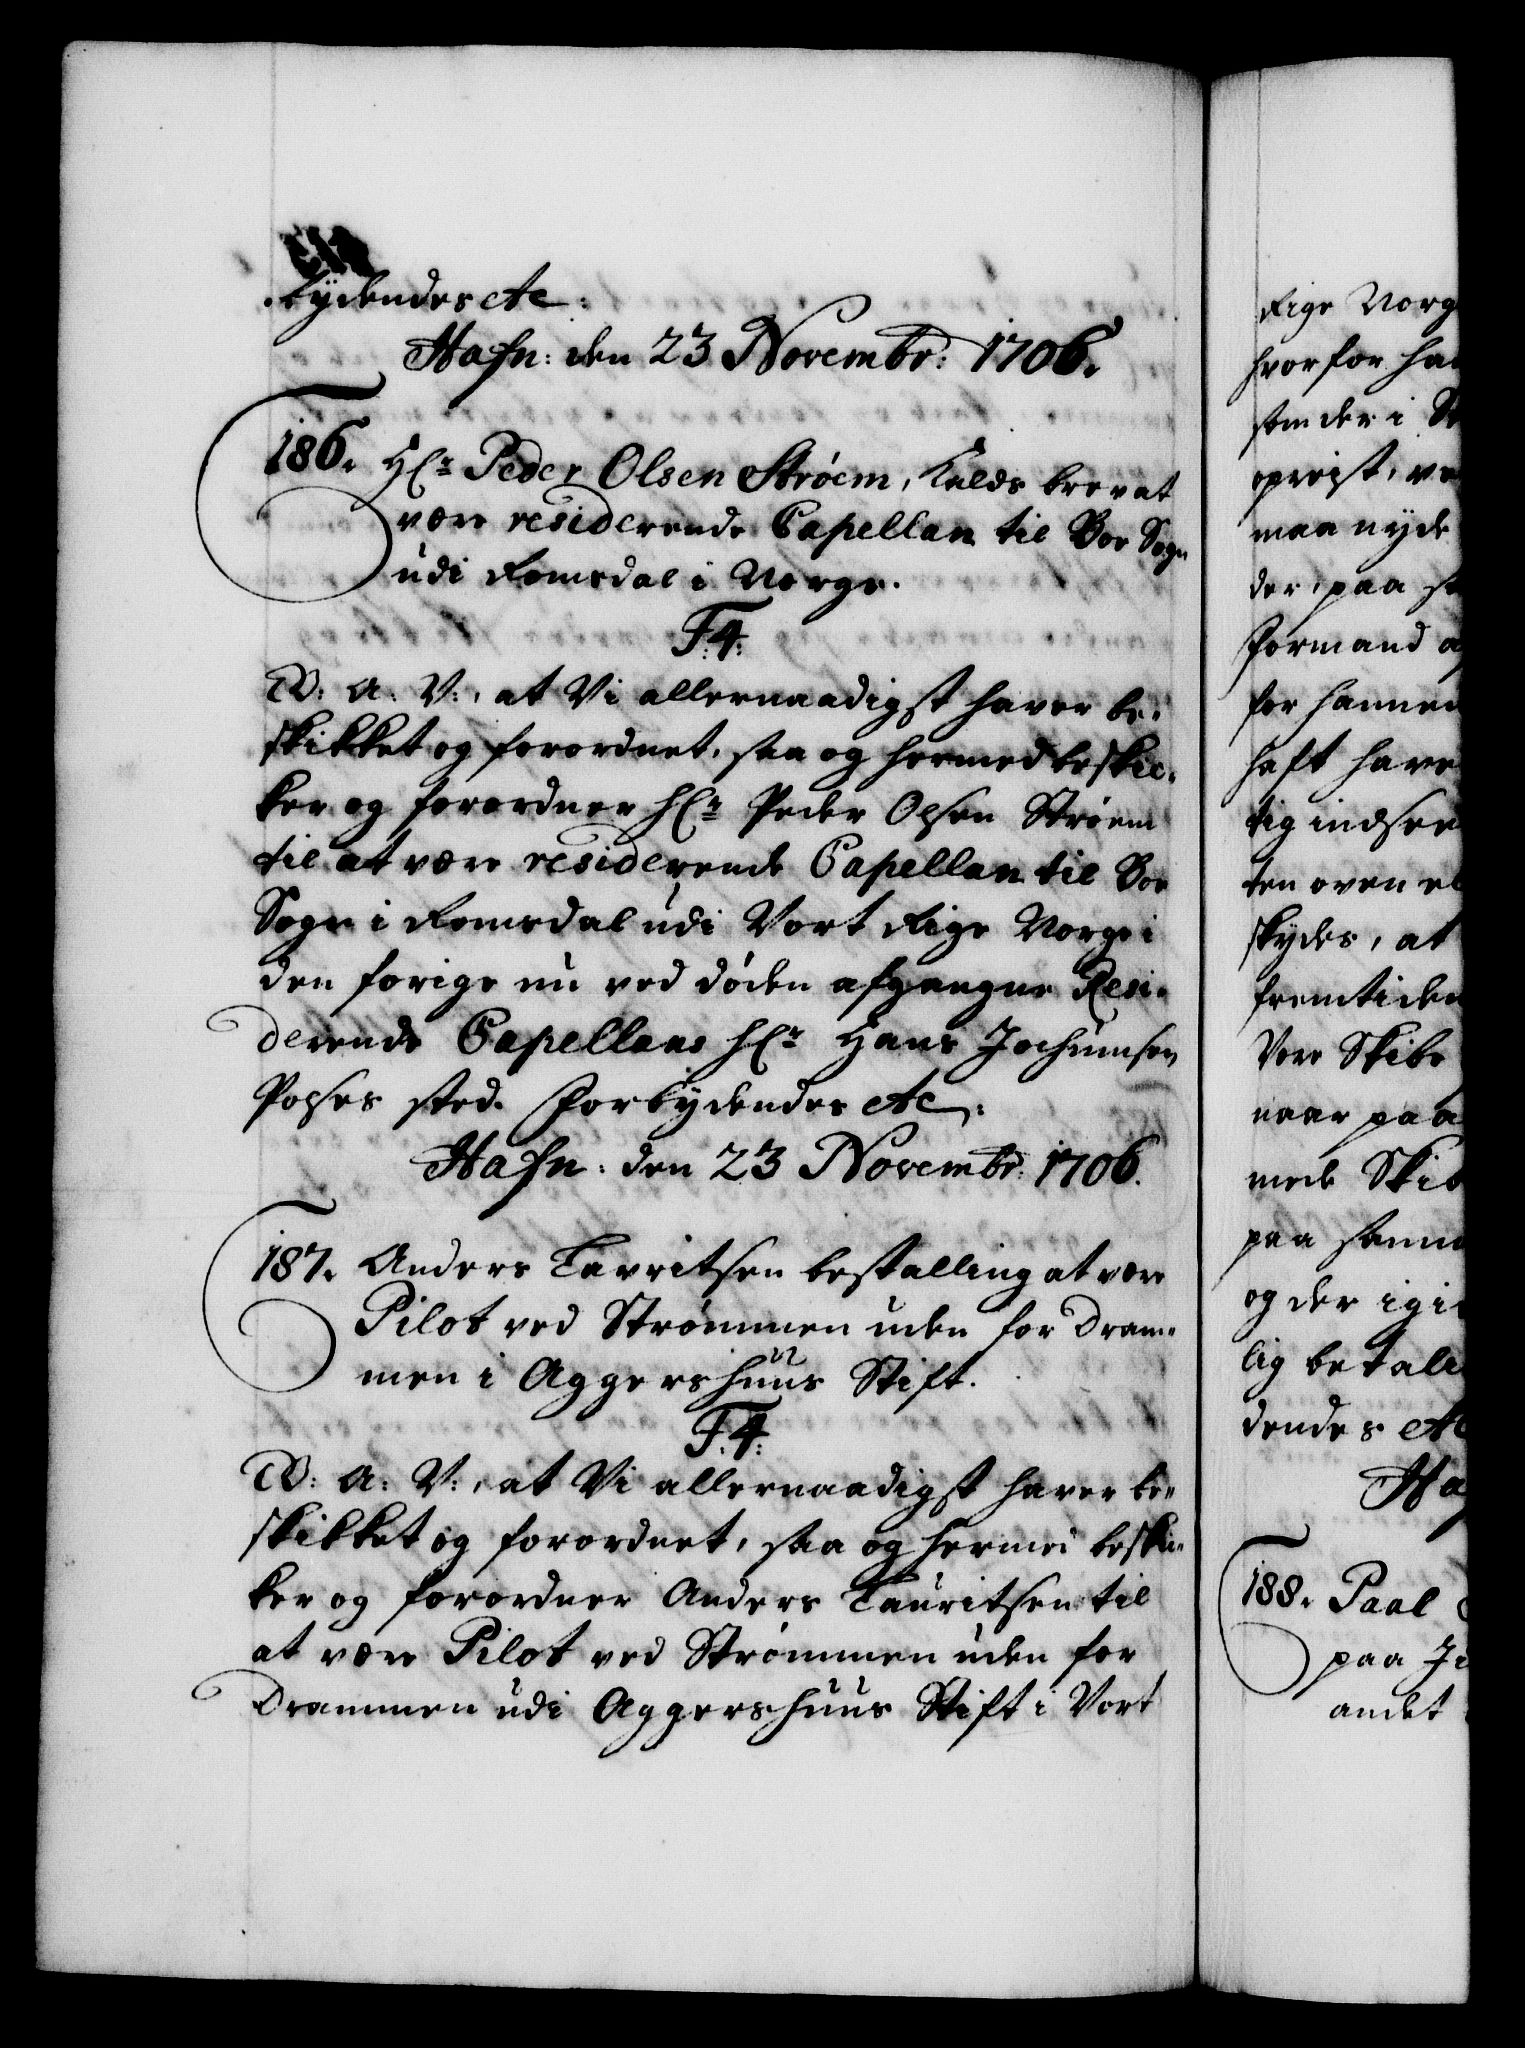 bydendes etc:
Hafn: den 23 Novembr: 1706.
186. Hr: Peder Olsen Strøem, Kalds brev at
være residerende Capellan til Boe Sogn
udi Romsdal i Norge.
F:4:
W: A: V:, at Vi allernaadigst haver be-
skikket og forordnet, saa og hermed beskic-
ker og forordner Hr: Peder Olsen Strøem
til at være residerende Capellan til Boe
Sogn i Romsdal udi Vort Rige Norge i
den forige nu ved døden afgangne Resi-
derende Capellans Hr: Hans Jochumsen
sted. Forbydendes etc:
Hafn: den 23 Novembr: 1706.
187. Anders Lavritsen bestalling at være
Pilot ved Strømmen uden for Dram-
men i Aggershuus Stift.
F:4:
W: A: V:, at Vi allernaadigst haver be-
skikket og forordnet, saa og hermed beski-
ker og forordner Anders Lauritsen til
at være Pilot ved Strømmen uden for
Drammen udi Aggershuus Stift i Vort
Rige Norg
hvorfor ha
som der i
opreist, ve
maa nyde
der, paa
formand
for hannem
haft have
tig indsee
ten oven
skydes, at
fremtiden
Vore Skibe
naar paa
mede Skib
paa samm
og der igi
lig betale
dendes etc
Ha
188. Paal
paa
andet